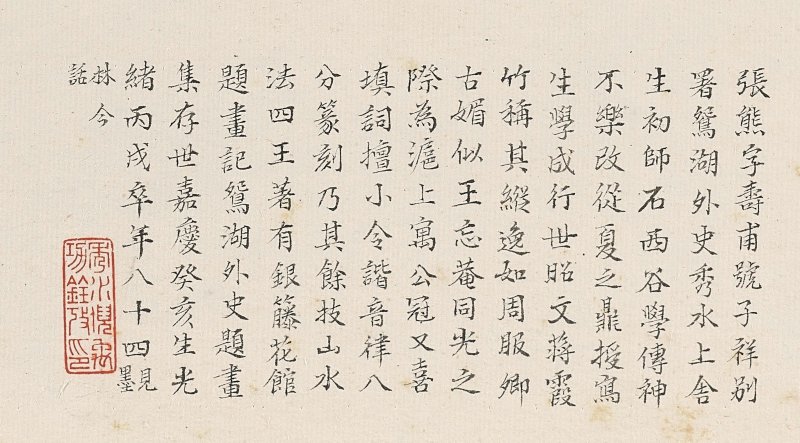 張熊字壽甫號子祥別
署鴛湖外史秀水上舍
生初師石西谷學傳神
不樂改從夏之鼎授寫
生學成行世昭文蔣霞
竹稱其縱逸如周服卿
古媚似王忘菴同光之
際為滬上寓公冠又喜
填詞擅小令諧音律八
分篆刻乃其餘技山水
法四王著有銀籐花館
題畫記鴛湖外史題畫
集存世嘉慶癸亥生光
緒丙戌卒年八十四見墨
林今話